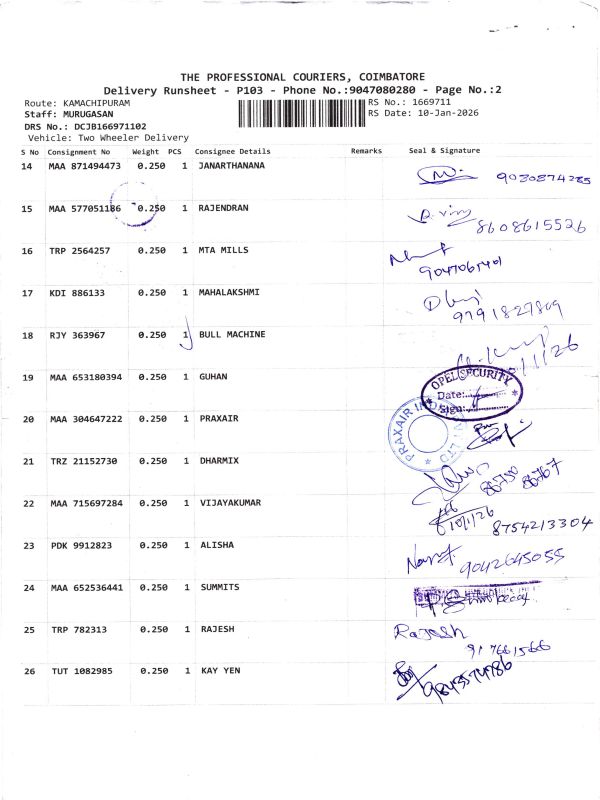 THE PROFESSIONAL COURIERS, COIMBATORE
Delivery Runsheet - P103 - Phone No.:9047080280 - Page No.:2
Route: KAMACHIPURAM RS No.: 1669711
Staff: MURUGASAN RS Date: 10-Jan-2026
DRS No.: DCJB166971102
Vehicle: Two Wheeler Delivery
S No Consignment No Weight PCS Consignee Details Remarks Seal & Signature
14 MAA 871494473 0.250 1 JANARTHANANA
9030874285
15 MAA 577051186 0.250 1 RAJENDRAN
8608615526
16 TRP 2564257 0.250 1 MTA MILLS
17 KDI 886133 0.250 1 MAHALAKSHMI
9791827809
18 RJY 363967 0.250 1 BULL MACHINE
19 MAA 653180394 0.250 1 GUHAN
OPEL SECURITY
Date:
Sign:
20 MAA 304647222 0.250 1 PRAXAIR
21 TRZ 21152730 0.250 1 DHARMIX
86750 86767
22 MAA 715697284 0.250 1 VIJAYAKUMAR
10/1/26
8754213304
23 PDK 9912823 0.250 1 ALISHA
9042645055
24 MAA 652536441 0.250 1 SUMMITS
25 TRP 782313 0.250 1 RAJESH Rajesh
917661566
26 TUT 1082985 0.250 1 KAY YEN